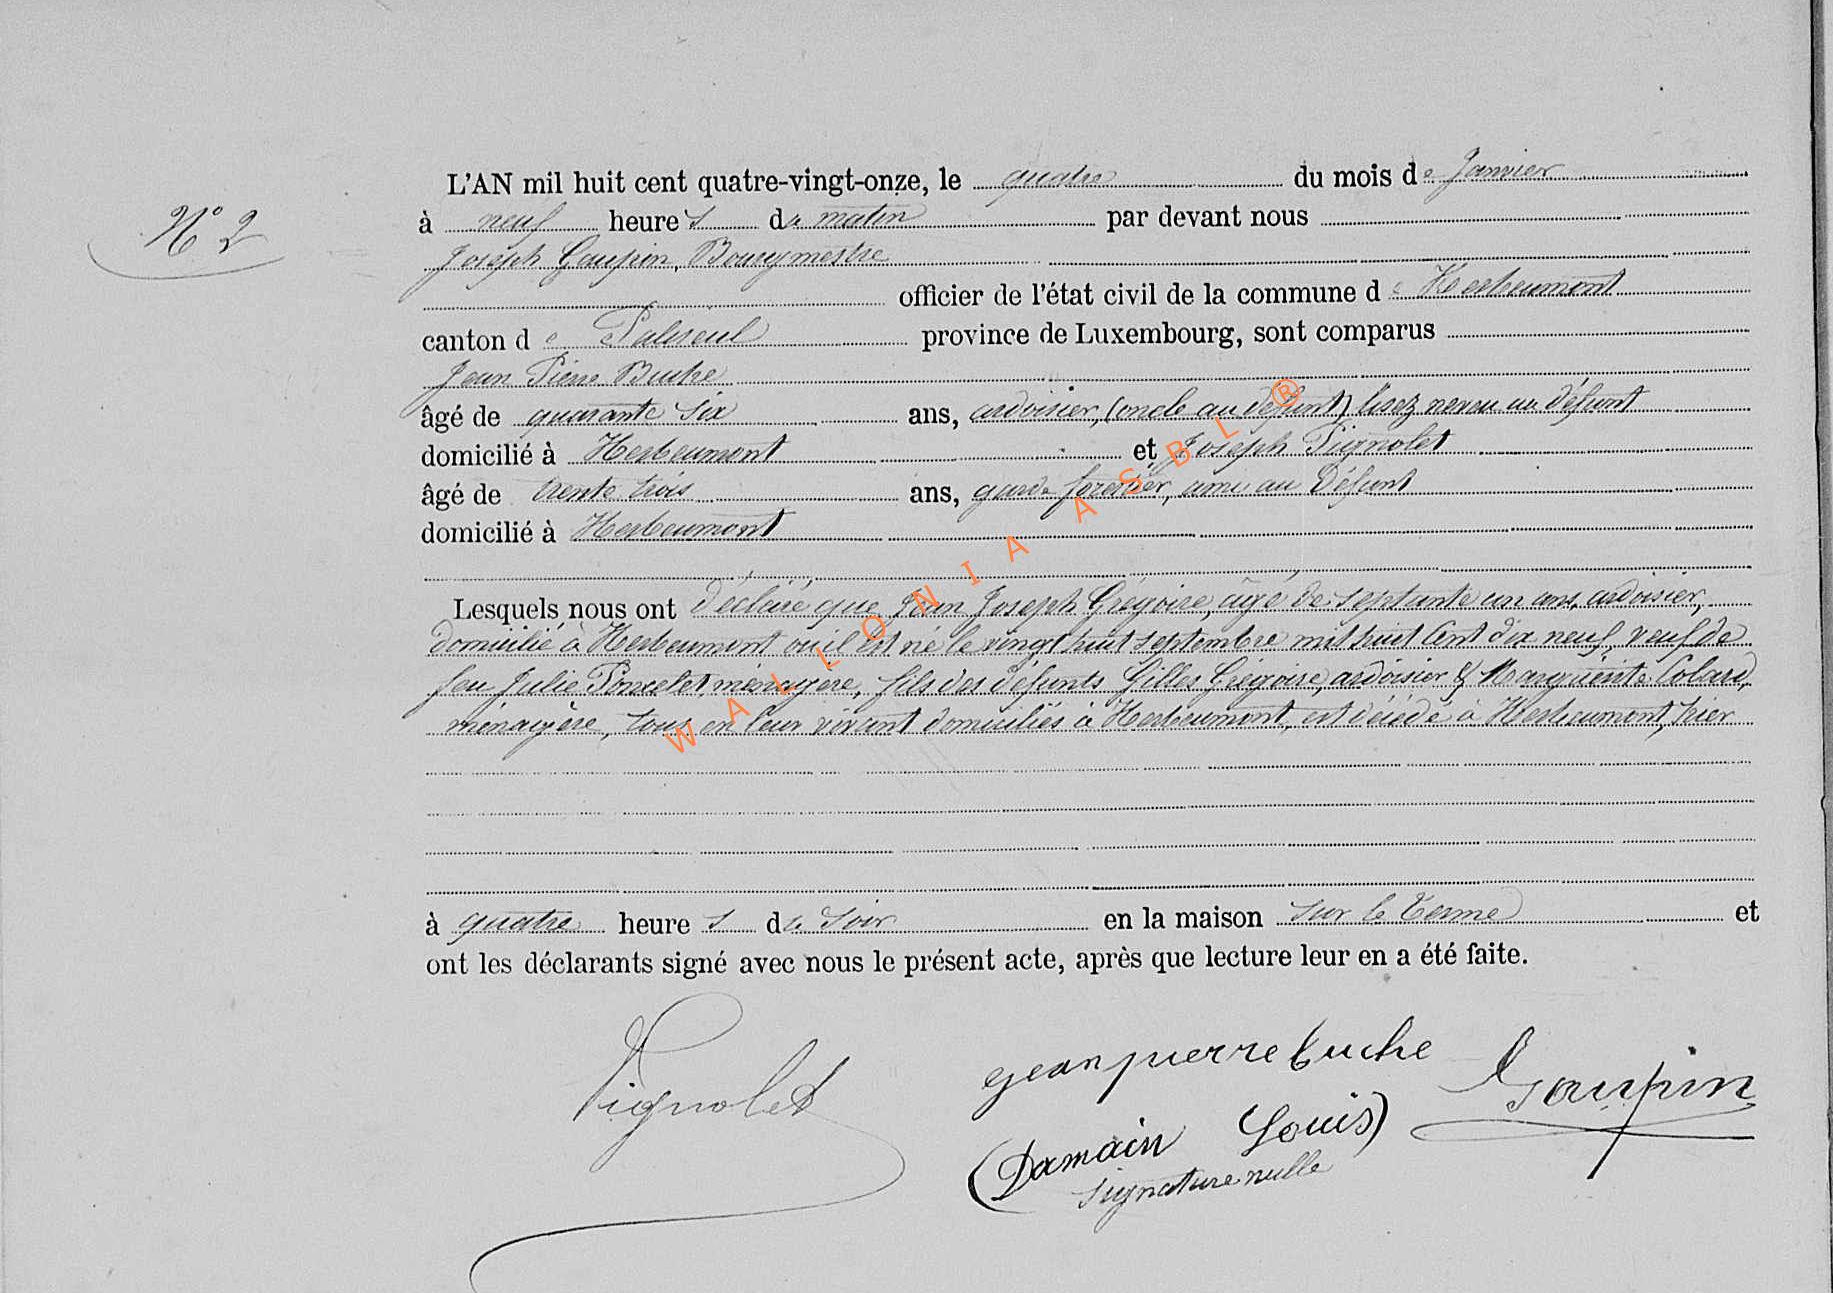 L'AN mil huit cent quatre-vingt-onze, le quatre du mois de Janvier
N° 2
à neuf heures du matin par devant nous
Joseph Goupin, Bourgmestre
officier de l'état civil de la commune de Herbeumont
canton de Paliseul province de Luxembourg, sont comparus
Jean Pierre Buche
âgé de quarante six ans, ardoisier, (oncle au défunt) lisez neveu au défunt
domicilié à Herbeumont et Joseph Pignolet
âgé de trente trois ans, garde forestier, ami au Défunt
domicilié à Herbeumont
Lesquels nous ont déclaré que Jean Joseph Grégoire, âgé de septante un ans, ardoisier,
domicilié à Herbeumont où il est né le vingt huit septembre mil huit cent dix neuf, veuf de
feu Julie Poncelet, ménagère, fils des défunts Gilles Grégoire, ardoisier & Marguerite Colard,
ménagère, tous en leur vivant domiciliés à Herbeumont, est décédé à Herbeumont, hier
à quatre heures du soir en la maison sur le Terme et
ont les déclarants signé avec nous le présent acte, après que lecture leur en a été faite.
Pignolet
jean pierre buche
Goupin
(Damain Louis)
signature nulle
WALLONIA ASBL ®